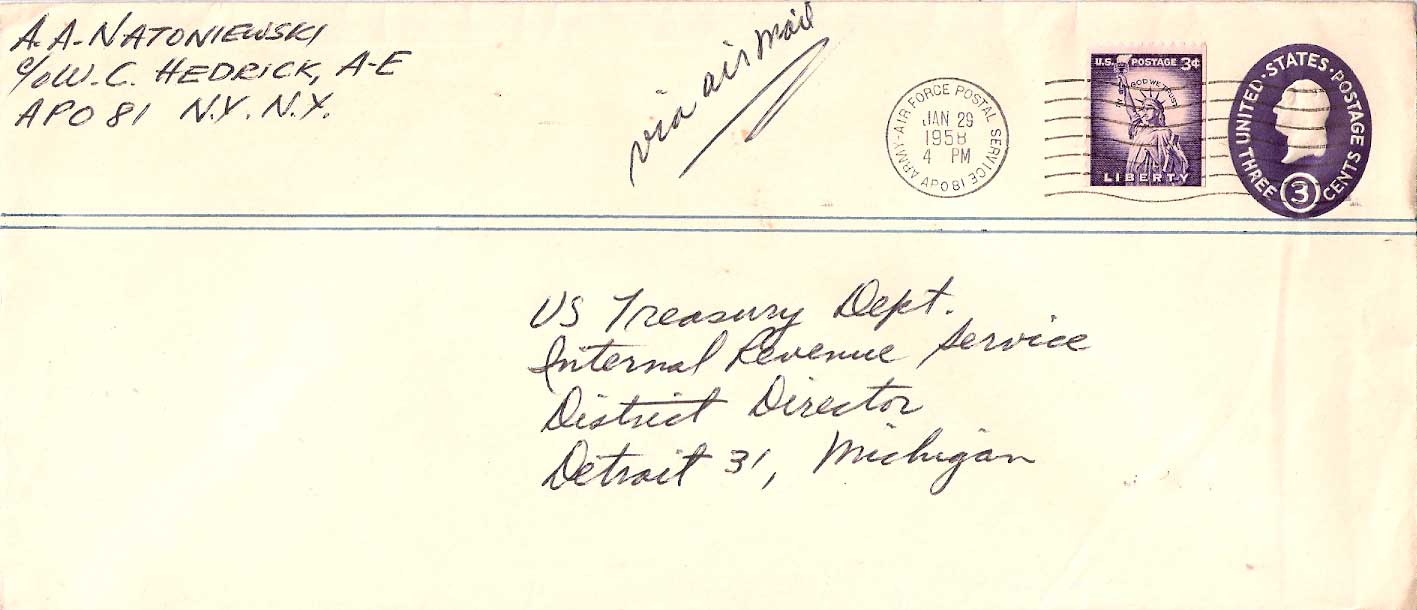 A. A. NATONIEWSKI
c/o W. C. HEDRICK, A-E
APO 81 N.Y. N.Y.
via air mail
ARMY-AIR FORCE POSTAL SERVICE
JAN 29
1958
4 PM
APO 81
U.S. POSTAGE 3¢
IN GOD WE TRUST
LIBERTY
UNITED·STATES·POSTAGE
THREE 3 CENTS
US Treasury Dept.
Internal Revenue Service
District Director
Detroit 31, Michigan